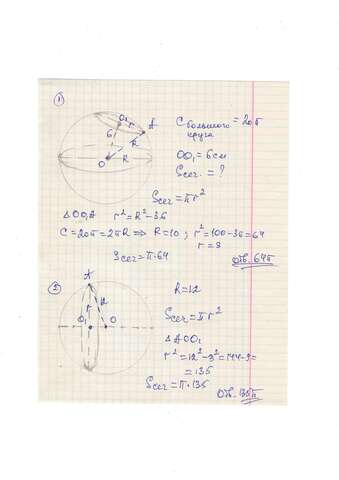 ①
O₁ r A
6 R
O R
C большого круга = 20π
OO₁ = 6 см
Sсеч. = ?
Sсеч = πr²
Δ OO₁A r² = R² - 36
C = 20π = 2πR ⇒ R = 10 ; r² = 100 - 36 = 64
r = 8
Sсеч = π·64
Отв. 64π
②
A
r 12
O₁ O
R = 12
Sсеч = πr²
Δ AOO₁
r² = 12² - 3² = 144 - 9 =
= 135
Sсеч = π·135
Отв. 135π